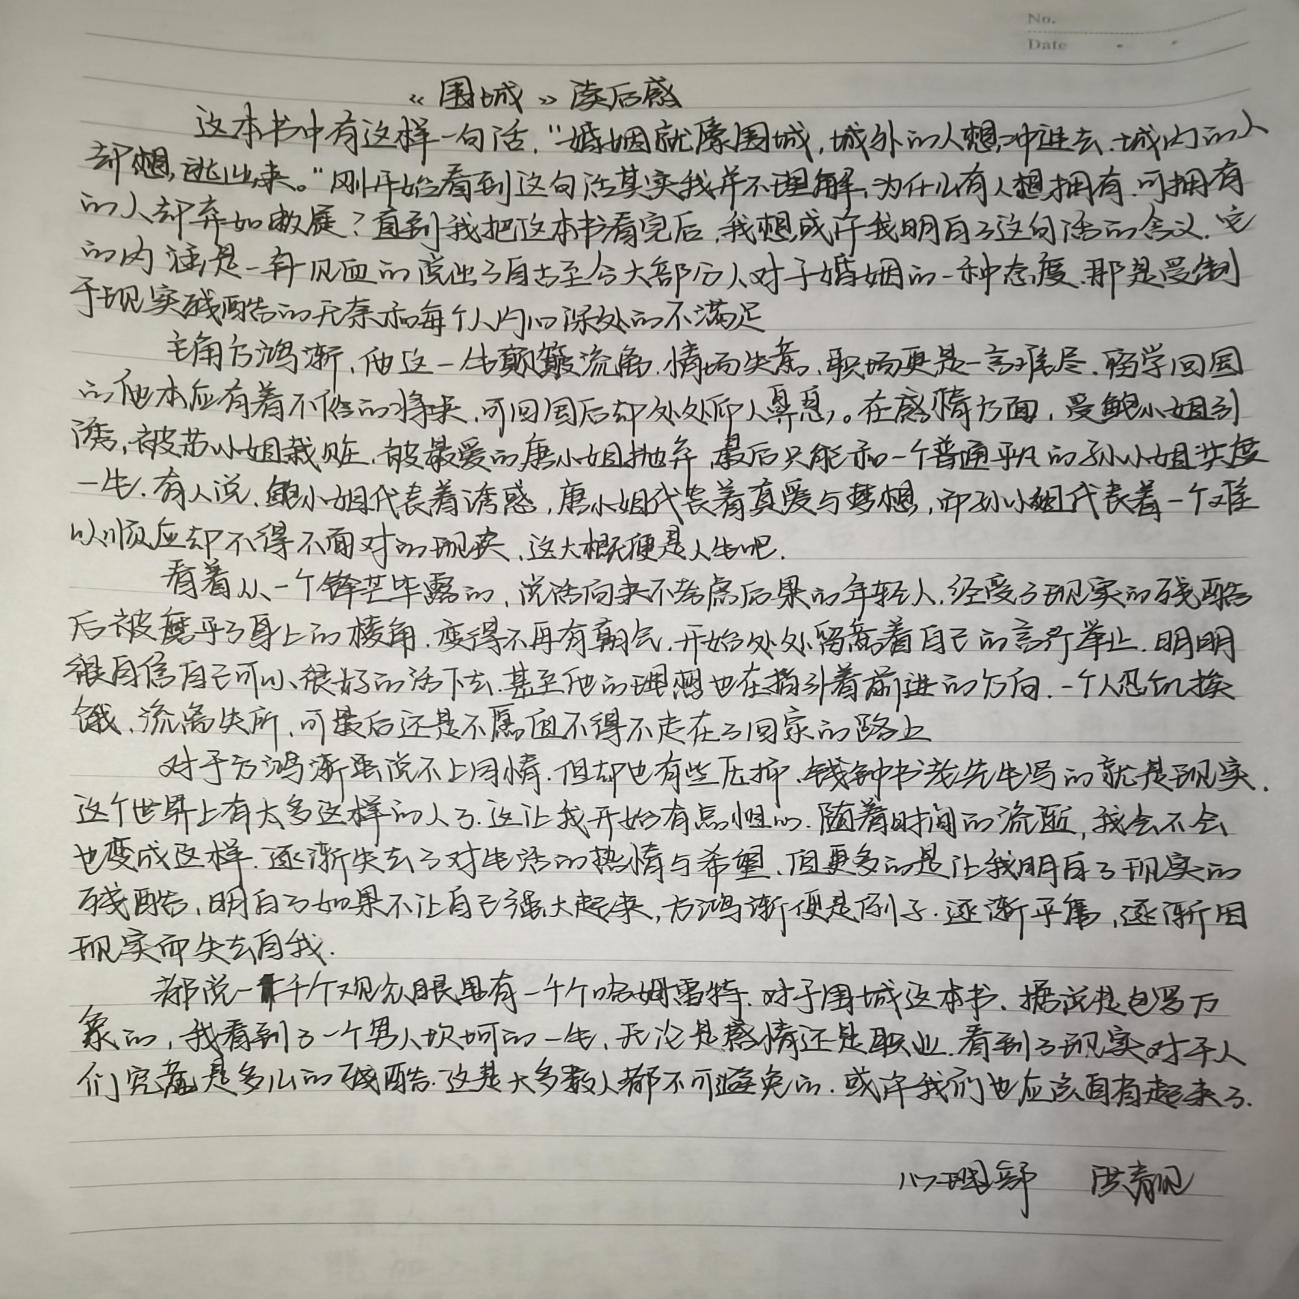 No.
Date
《围城》读后感
这本书中有这样一句话，“婚姻就像围城，城外的人想冲进去，城内的人
却想逃出来。”刚开始看到这句话其实我并不理解，为什么有人想拥有，可拥有
的人却弃如敝屣？直到我把这本书看完后，我想或许我明白了这句话的含义，它
的内涵是一针见血的说出了自古至今大部分人对于婚姻的一种态度，那是受制
于现实残酷的无奈和每个人内心深处的不满足
主角方鸿渐，他这一生颠簸流离，情场失意，职场更是一言难尽，留学回国
的他本应有着不俗的将来，可回国后却处处仰人鼻息。在感情方面，受鲍小姐引
诱，被苏小姐栽赃，被最爱的唐小姐抛弃，最后只能和一个普通平凡的孙小姐共度
一生，有人说，鲍小姐代表着诱惑，唐小姐代表着真爱与梦想，而孙小姐代表着一个难
以顺应却不得不面对的现实，这大概便是人生吧.
看着从一个锋芒毕露的，说话向来不考虑后果的年轻人，经受了现实的残酷
后被磨平了身上的棱角，变得不再有朝气，开始处处留意着自己的言行举止，明明
很自信自己可以很好的活下去，甚至他的理想也在指引着前进的方向，一个人忍饥挨
饿，流离失所，可最后还是不愿但不得不走在了回家的路上
对于方鸿渐虽说不上同情，但却也有些压抑，钱钟书老先生写的就是现实.
这个世界上有太多这样的人了，这让我开始有点担心，随着时间的流逝，我会不会
也变成这样，逐渐失去了对生活的热情与希望，但更多的是让我明白了现实的
残酷，明白了如果不让自己强大起来，方鸿渐便是例子，逐渐平庸，逐渐因
现实而失去自我.
都说一千个观众眼里有一千个哈姆雷特，对于围城这本书，据说是包罗万
象的，我看到了一个男人坎坷的一生，无论是感情还是职业，看到了现实对于人
们究竟是多么的残酷，这是大多数人都不可避免的，或许我们也应该自省起来了.
心理部 洪青